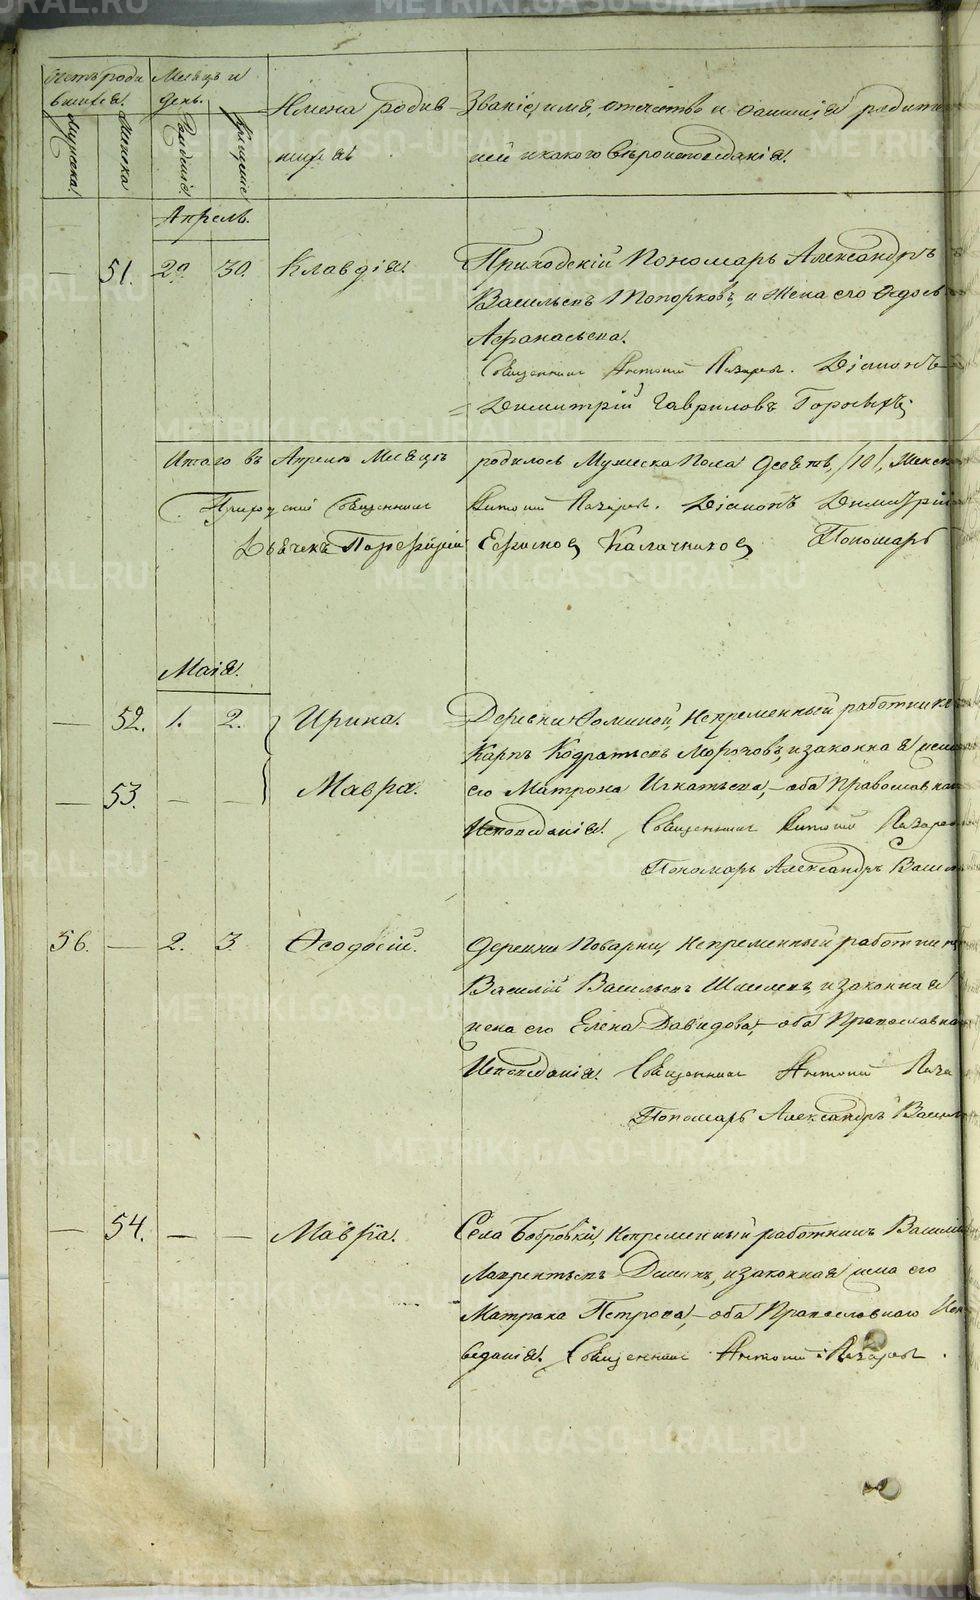 Счетъ роди Месяцъ и
вшихся. день. Имена родив Званіе, имя, отчество и фамилія родите
Мужеска. Женска Рожденія Крещенія шихся лей и какого вѣроисповѣданія.
Апрель.
— 51. 29 30. Клавдія. Приходскій Пономарь Александръ
Васильевъ Топорковъ, и жена его Федосья
Афанасьева.
Священникъ Антоній Лазаревъ. Діаконъ
Димитрій Гавриловъ Горныхъ;
Итого въ Апрелѣ Месяцѣ родилось Мужеска Пола Десять, /10/, Женск
Приходскій Священникъ Антоній Лазаревъ. Діаконъ Димитрій
Дьячекъ Порфирій Ефимовъ Калачниковъ Пономарь
Маія.
— 52. 1. 2. Ирина. Деревни Фоминой, Непременный работникъ
Карпъ Кодратьевъ Морозовъ, и законная жена
— 53. — — Мавра. его Матрона Игнатьева, — оба Православнаго
Исповеданія. Священникъ Антоній Лазаревъ
Пономарь Александръ Василь
56. — 2. 3. Ѳеодосій. Деревни Поварни, Непременный работникъ
Василій Васильевъ и законная
жена его Елена Давидова, — оба Православна
Исповеданія. Священникъ Антоній Лаза
Пономарь Александръ Василь
— 54. — — Мавра. Села Бобровки, Непременный работникъ Василій
Лаврентьевъ и законная жена его
Матрона Петрова, — оба Православнаго Испо
веданія. Священникъ Антоній Лазаревъ.
METRIKI.GASO-URAL.RU